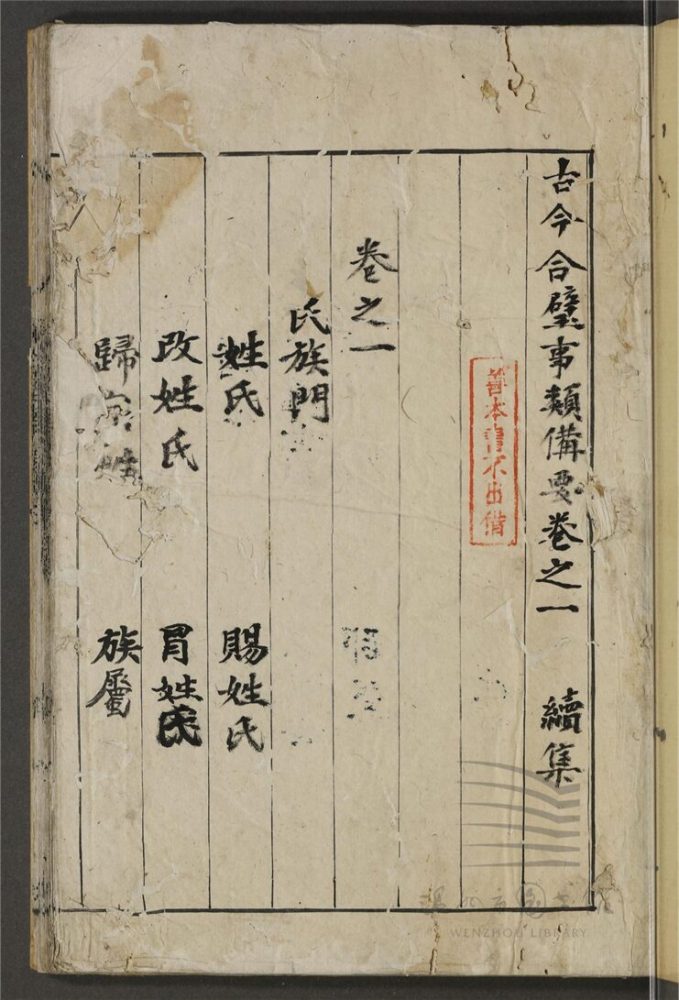 古今合璧事類備要卷之一 續集
善本書不出借
卷之一
氏族門
姓氏 賜姓氏
改姓氏 冒姓氏
歸 族屬
WENZHOU LIBRARY